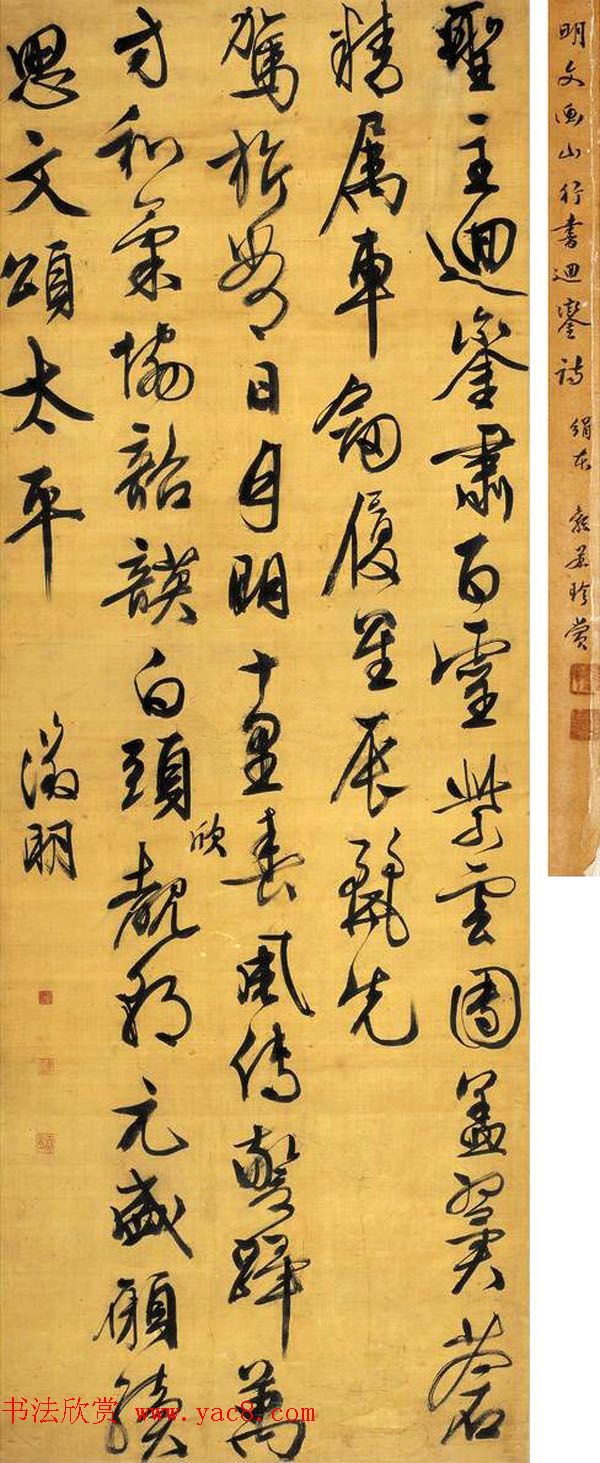 聖主迴鑾肅百靈紫雲團蓋翼蒼
精属車劒履星辰麗先
駕旂常日月明十里春風傳警蹕萬
方和氣協韶韺白頭欣覩朝元盛願續
思文頌太平
徵明
明文衡山行書迴鑾詩 絹本 珍賞
书法欣赏 www.yac8.com